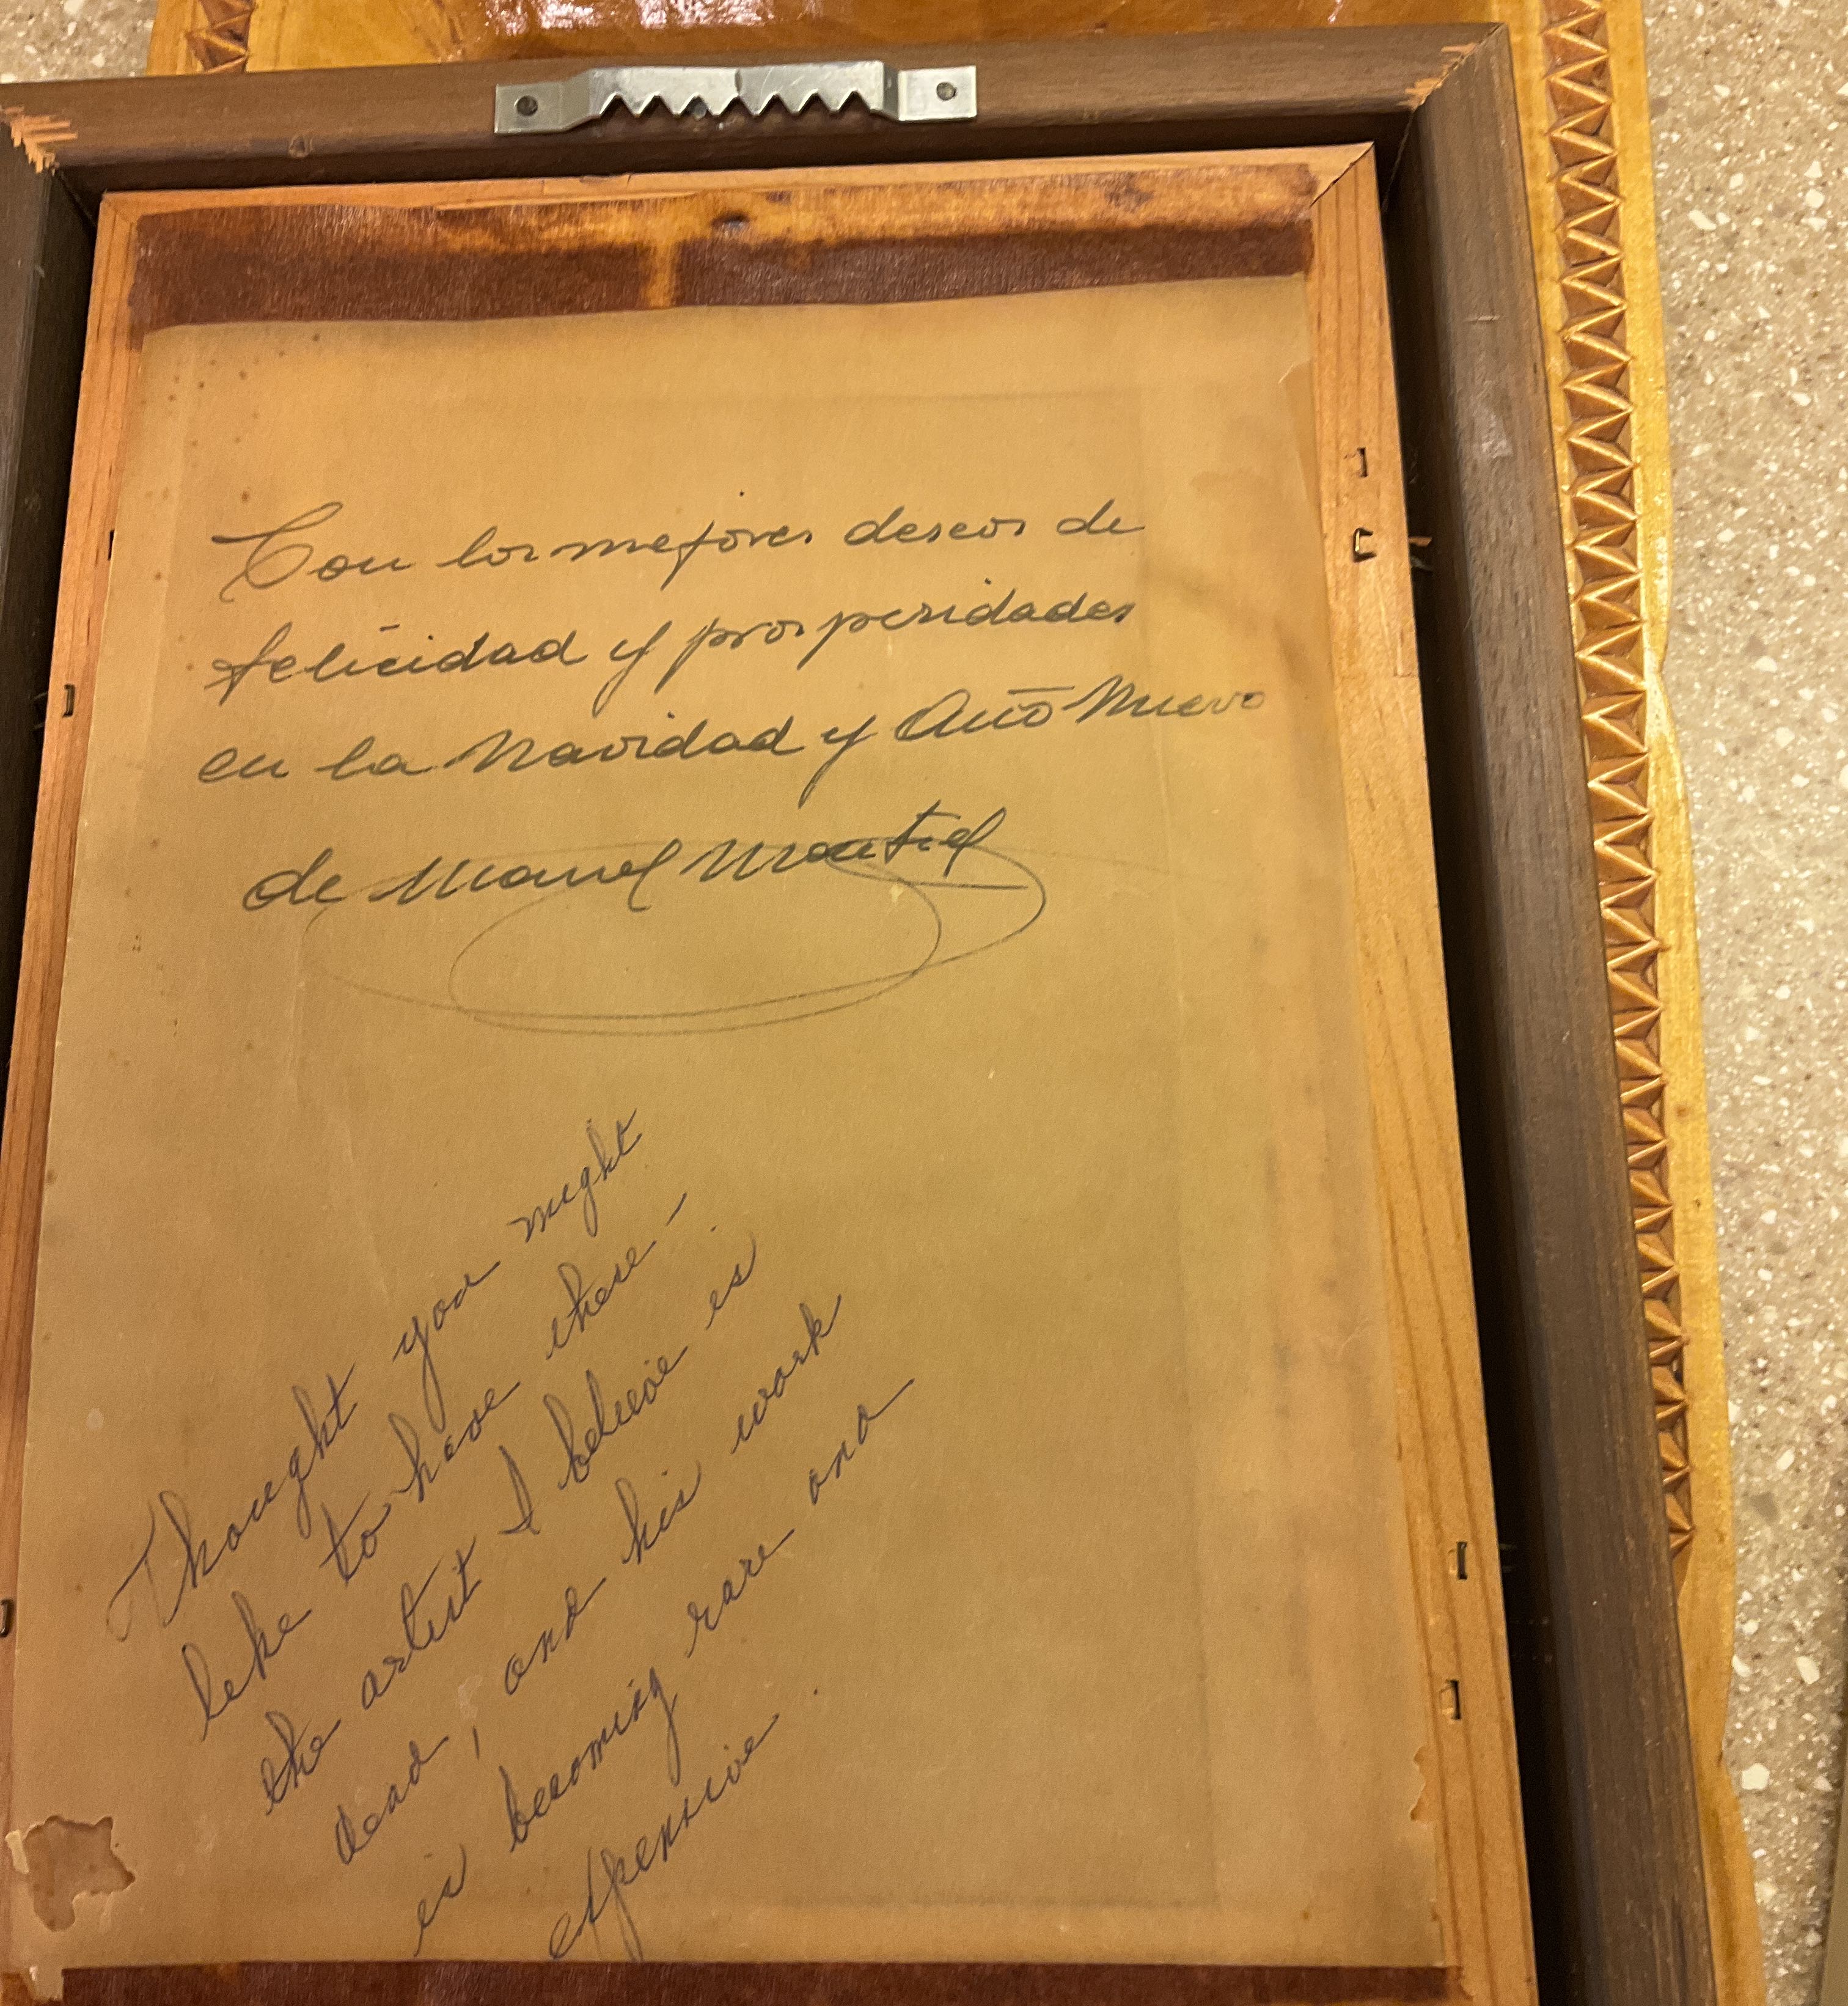 Con los mejores deseos de
felicidad y prosperidades
en la Navidad y Año Nuevo
de Manuel Montiel
Thought you might
like to have these –
the artist I believe is
dead, and his work
is becoming rare and
expensive.